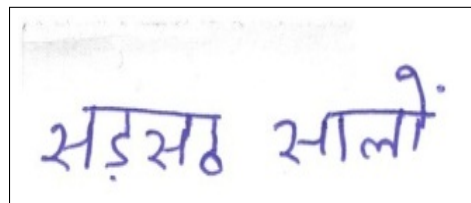 सड़सठ सालों